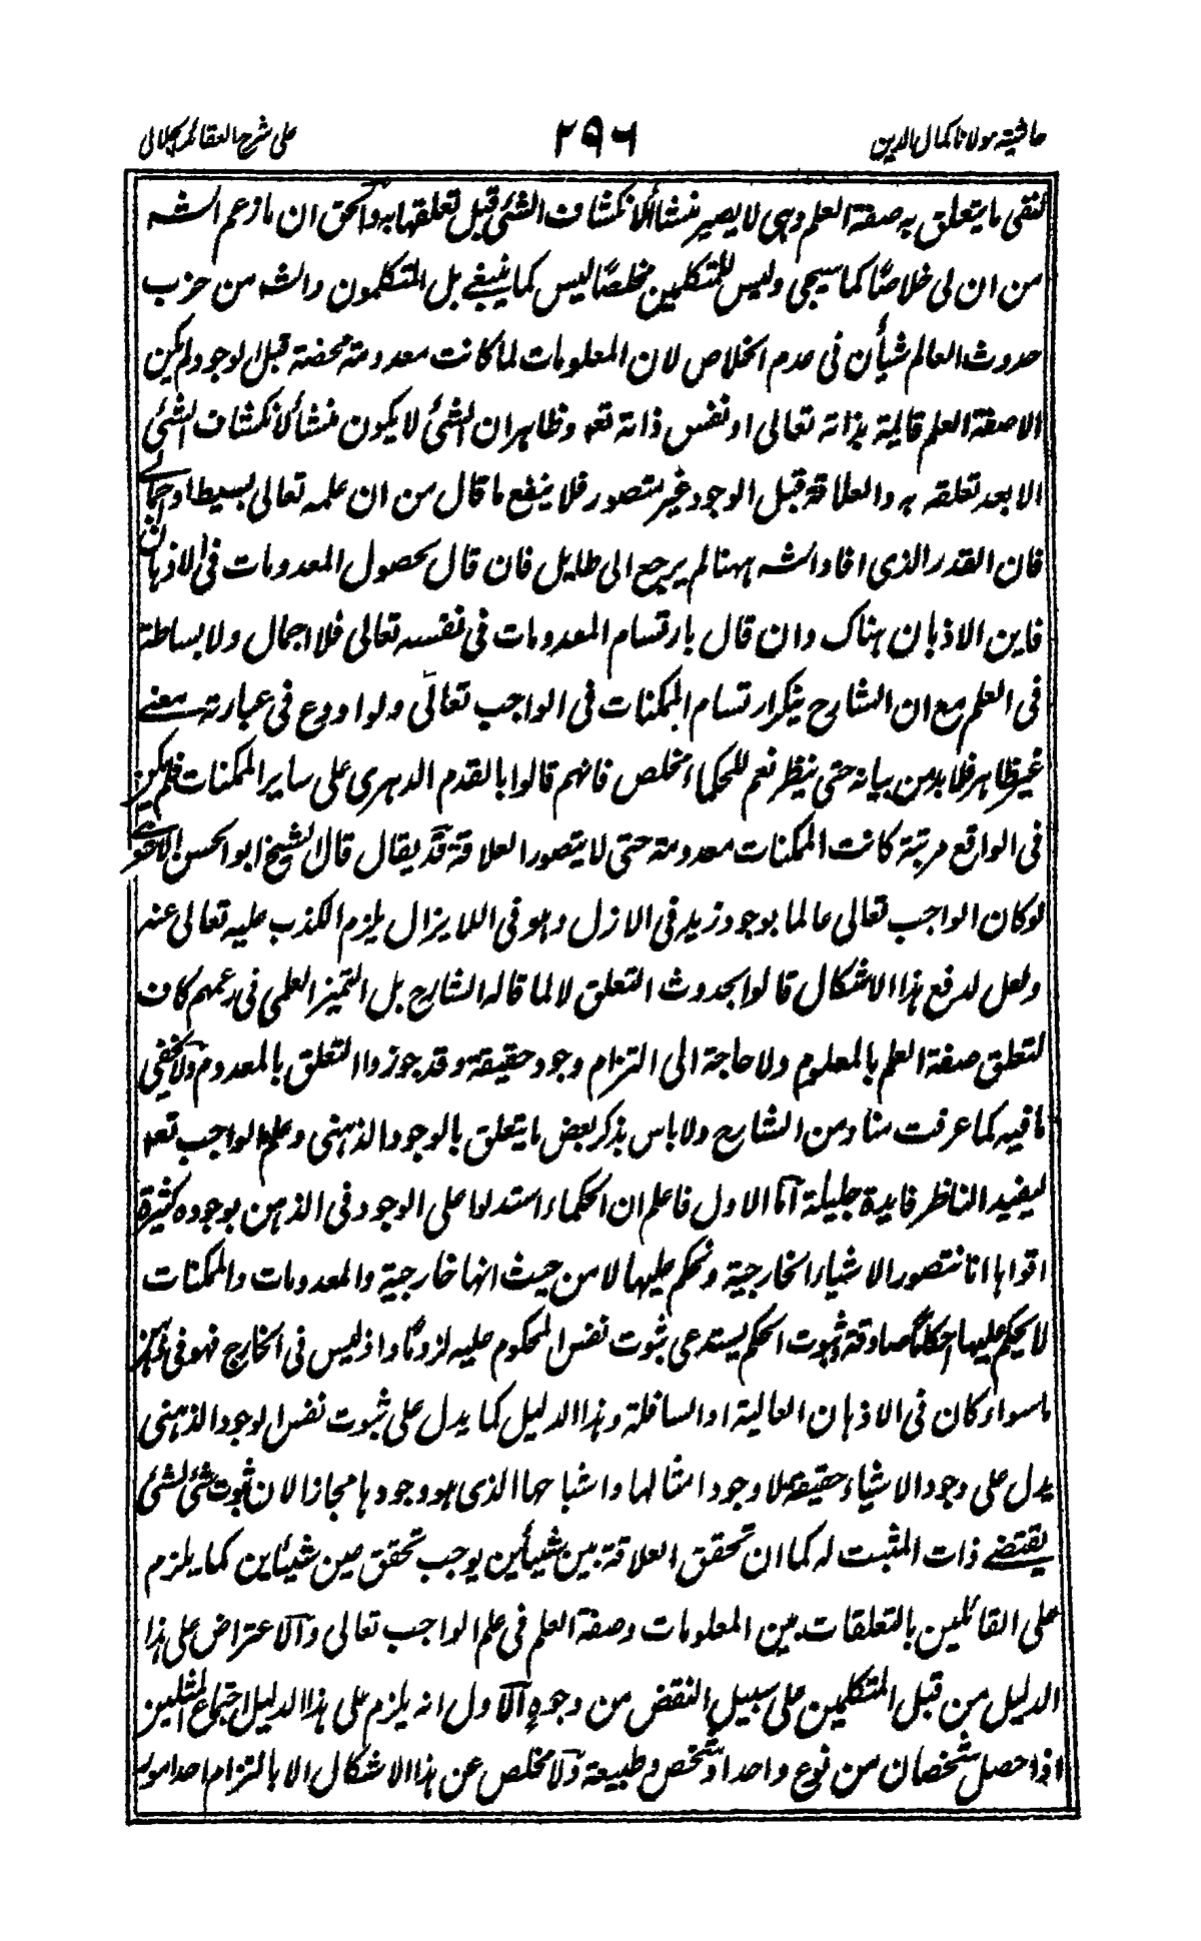 حاشية مولانا كمال الدين
٢٩٦
على شرح العقائد الجلالى
لنفى ما يتعلق به صفة العلم وهى لا يصير منشأ لانكشاف الشئ قبل تعلقها به والحق ان ما زعم الشه
من ان لى خلاصا كما سيجى وليس للمتكلمين مخلصا ليس كما ينبغى بل المتكلمون والشه من حزب
حدوث العالم شيأن فى عدم الخلاص لان المعلومات لما كانت معدومة محضة قبل الوجود لم يكن
الا صفة العلم قائمة بذاته تعالى او نفس ذاته تعہ وظاهر ان الشئ لا يكون منشأ لانكشاف الشئ
الا بعد تعلقه به والعلاقة قبل الوجود غير متصور فلا ينفع ما قال من ان علمه تعالى بسيط اوجمالى
فان القدر الذى افاد الشه ههنا لم يرجع الى طايل فان قال بحصول المعدومات فى الاذهان
فاين الاذهان هناك وان قال بارتسام المعدومات فى نفسه تعالى فلا اجمال ولا بساطة
فى العلم مع ان الشارح ينكر ارتسام الممكنات فى الواجب تعالى ولو اودع فى عبارته معنى
غير ظاهر فلا بد من بيانه حتى ينظر نعم للحكماء مخلص فانهم قالوا بالقدم الدهرى على ساير الممكنات فلم يكن
فى الواقع مرتبة كانت الممكنات معدومة حتى لا يتصور العلاقة قد يقال قال الشيخ ابو الحسن الاشعرى
لو كان الواجب تعالى عالما بوجود زيد فى الازل وهو فى اللايزال يلزم الكذب عليه تعالى عنه
ولعل لدفع هذا الاشكال قالوا بحدوث التعلق لا لما قاله الشارح بل التميز العلمى فى زعمهم كان
لتعلق صفة العلم بالمعلوم ولا حاجة الى التزام وجود حقيقة وقد جوزوا التعلق بالمعدوم ولا يخفى
ما فيه كما عرفت منا ومن الشارح ولا باس بذكر بعض ما يتعلق بالوجود الذهنى وعلم الواجب تعہ
ليفيد الناظر فايدة جليلة اما الاول فاعلم ان الحكماء استدلوا على الوجود فى الذهن بوجوه كثيرة
اقواها انا نتصور الاشياء الخارجية ونحكم عليها لا من حيث انها خارجية والمعدومات والممكنات
لا يحكم عليها احكاما صادقة ثبوت الحكم يستدعى ثبوت نفس المحكوم عليه لزوما واذ ليس فى الخارج فهو فى الذهن
ما سواء كان فى الاذهان العالية او السافلة وهذا الدليل كما يدل على ثبوت نفس الوجود الذهنى
يدل على وجود الاشياء حقيقة لا وجود امثالها واشباحها الذى هو وجودها مجازا لان ثبوت شئ لشئ
يقتضى ذات المثبت له كما ان تحقق العلاقة بين شيأين يوجب تحقق عين شيئاين كما يلزم
على القائلين بالتعلقات بين المعلومات وصفة العلم فى علم الواجب تعالى والاعتراض على هذا
الدليل من قبل المتكلمين على سبيل النقض من وجوه الاول انه يلزم على هذا الدليل اجتماع المثلين
اذا حصل شخصان من نوع واحد او شخص وطبيعة ولا مخلص عن هذا الاشكال الا بالتزام احد امور